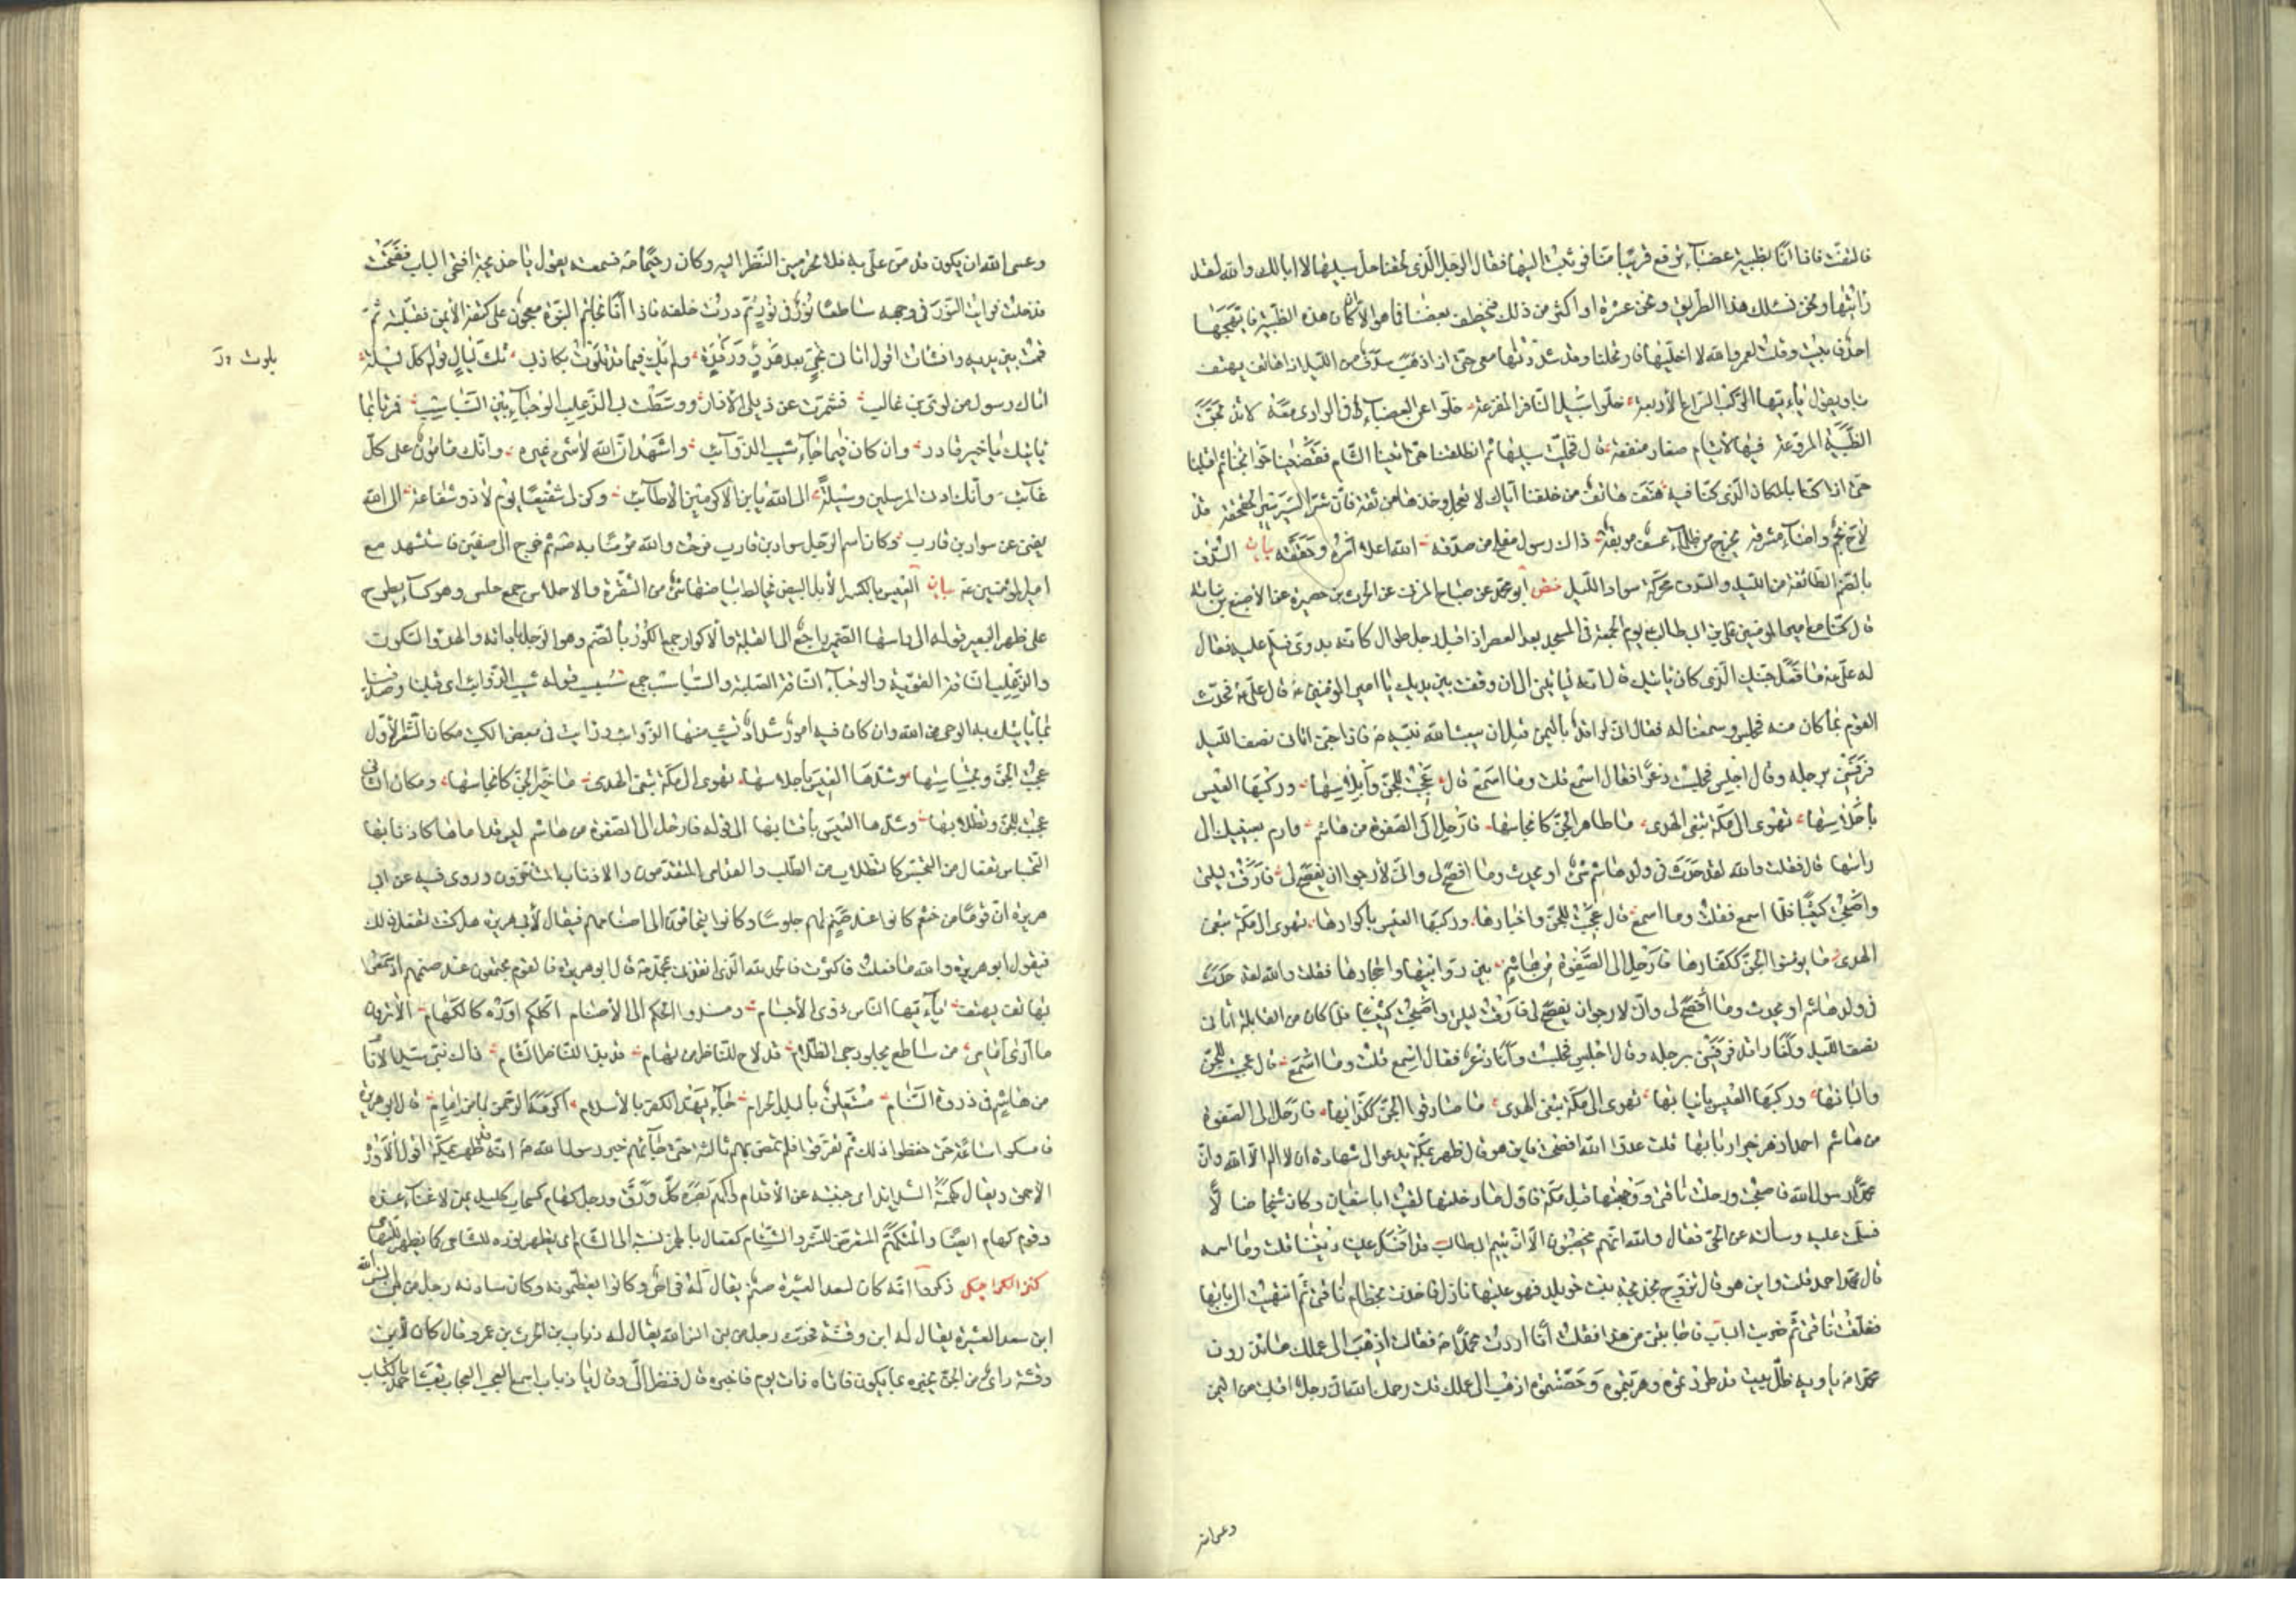 فالتفت فاذا انا بظبية عضبآء ترتع قريبا منا فوثبت اليها فقال الرجل الذى لحقنا خل سبيلها لا ابا لك والله لقد
رايتها ونحن نسلك هذا الطريق ونحن عشرة او اكثر من ذلك فيخطف بعضنا فما هو الا ان كان هذه الظبية فما يهيجها
احد فابيت وقلت لعمر والله لا اخليها فارتحلنا وقد شددتها معى حتى اذا ذهب سدف من الليل اذا هاتف يهتف
بنا ويقول يا ايها الركب السراع الاربعة خلوا سبيل النافر المفزعة خلوا عن العضبآء فى الوادى معة لا تذبحن
الظبية المروعة فيها لايتام صغار منفعة قال فخليت سبيلها ثم انطلقنا حتى اتينا الشام فقضينا حوائجنا ثم اقبلنا
حتى اذا كنا بالمكان الذى كنا فيه هتف هاتف من خلفنا اياك لا تعجل وخذها من ثقة فان شر السير سير الحقحقة قد
لاح نجم واضآء مشرقه يخرج من ظلمآء عسف موبقة ذاك رسول مفلح من صدقه الله اعلا امره وحققه بيان السدف
بالضم الطائفة من الليل والسدف محركة سواد الليل خص ابو محمد عن صباح المزنى عن الحرث بن حصيرة عن الاصبغ بن نباتة
قال كنا مع امير المؤمنين على بن ابى طالب ع يوم الجمعة فى المسجد بعد العصر اذ اقبل رجل طوال كانه بدوى فسلم عليه فقال
له على ع ما فعل جنيك الذى كان ياتيك قال انه لياتينى الى ان وقفت بين يديك يا امير المؤمنين ع قال على ع فحدث
القوم بما كان منه فجلس وسمعنا له فقال انى لراقد باليمن قبل ان يبعث الله نبيه ص فاذا جنى اتانى نصف الليل
فرفسنى برجله وقال اجلس فجلست ذعرا فقال اسمع قلت وما اسمع قال عجبت للجن وابلاسها وركبها العيس
باحلاسها تهوى الى مكة تبغى الهدى ما طاهر الجن كانجاسها فارحل الى الصفوة من هاشم وارم بعينيك الى
راسها قال فقلت والله لقد حدث فى ولد هاشم شىء او يحدث وما افصح لى وانى لارجو ان يفصح لى فارقت ليلتى
واصبحت كئيبا فلما اسمع فقلت وما اسمع قال عجبت للجن واخبارها وركبها العيس باكوارها تهوى الى مكة تبغى
الهدى ما مؤمنوا الجن ككفارها فارحل الى الصفوة من هاشم بين روابيها واحجارها فقلت والله لقد حدث
فى ولد هاشم او يحدث وما افصح لى وانى لارجو ان يفصح لى فارقت ليلتى واصبحت كئيبا فلما كان من القابلة اتانى
نصف الليل وانا راقد فرفسنى برجله وقال اجلس فجلست وانا ذعر فقال اسمع قلت وما اسمع قال عجبت للجن
والبانها وركبها العيس بانيابها تهوى الى مكة تبغى الهدى ما صادقوا الجن ككذابها فارحل الى الصفوة
من هاشم احمد ازهر خير اربابها قلت عدو الله افصحت فاين هو قال ظهر بمكة يدعو الى شهادة ان لا اله الا الله وان
محمدا رسول الله فاصبحت ورحلت ناقتى ووجهتها قبل مكة فاول ما دخلتها لقيت ابا سفيان وكان شيخا ضالا
فسلمت عليه وسالته عن الحى فقال والله انهم مخصبون الا ان يتيم ابى طالب قد افسد علينا ديننا قلت وما اسمه
قال محمد احمد قلت واين هو قال تزوج بخديجة بنت خويلد فهو عليها نازل فاخذت بخطام ناقتى ثم انتهيت الى بابها
فعقلت ناقتى ثم ضربت الباب فاجابتنى من هذا فقلت انا اردت محمدا ص فقالت اذهب الى عملك ما تذرون
محمدا ص ياويه ظل بيت قد طردتموه وهربتموه وحصنتموه اذهب الى عملك قلت رحمك الله انى رجل اقبلت من اليمن
وعسى الله
وعسى الله ان يكون قد من على به فلا تحرمينى النظر اليه وكان رحيما ص فسمعته يقول يا خديجة افتحى الباب ففتحت
فدخلت فرايت النور فى وجهه ساطعا نور فى نور ثم درت خلفه فاذا انا بخاتم النبوة معجون على كتفه الايمن فقبلته ثم
قمت بين يديه وانشات اقول اتانى نجى بعد هدو ورقدة ولم يك فيما قد تلوت بكاذب ثلث ليال قوله كل ليلة
بلوت در
اتاك رسول من لوى بن غالب فشمرت عن ذيلى الازار ووسطت بى الذعلب الوجنآء بين السباسب فمرنا بما
ياتيك يا خير قادر وان كان فيما جآء شيب الذوآئب واشهد ان الله لا شىء غيره وانك مامون على كل
غآئب وانك ادنى المرسلين وسيلة الى الله يا ابن الاكرمين الاطآئب وكن لى شفيعا يوم لا ذو شفاعة الى الله
يغنى عن سواد بن قارب وكان اسم الرجل سواد بن قارب فرحت والله مؤمنا به ص ثم خرج الى صفين فاستشهد مع
امير المؤمنين ع بيان العيس بالكسر الابل البيض يخالط بياضها شىء من الشقرة والاحلاس جمع حلس وهو كسآء يطرح
على ظهر البعير قوله الى راسها الضمير راجع الى القبيلة والاكوار جمع الكور بالضم وهو الرحل باداته والهدء السكون
والذعلب الناقة القوية والوجنآء الناقة الصلبة والسباسب جمع سبسب قوله شيب الذوائب اى قبلنا وصدقنا
بما ياتيك به الوحى من الله وان كان فيه امور شداد تشيب منها الذوائب ورايت فى بعض الكتب مكان الشعر الاول
عجبت للجن وتجساسها وشدها العيس باحلاسها تهوى الى مكة تبغى الهدى ما خير الجن كانجاسها ومكان الثانى
عجبت للجن وتطلابها وشدها العيس باقتابها الى قوله فارحل الى الصفوة من هاشم ليس قداماها كاذنابها
التجساس تفعال من التجسس كالتطلاب من الطلب والقدامى المتقدمون والاذناب المتاخرون وروى فيه عن ابى
هريرة ان قوما من خثعم كانوا عند صنم لهم جلوسا وكانوا يتحاكمون الى اصنامهم فيقال لابى هريرة هل كنت تفعل ذلك
فيقول ابو هريرة والله ما فعلت فاكثرت فالحمد لله الذى انقذنى بمحمد ص قال ابو هريرة فالقوم مجتمعون عند صنمهم اذ سمعوا
بهاتف يهتف يا ايها الناس ذوى الاجسام ومسندوا الحكم الى الاصنام اكلكم اوره كالكهام الا ترون
ما ارى امامى من ساطع يجلو دجى الظلام قد لاح للناظر من تهام قد بدا للناظر الشام ذاك نبى سيد الانام
من هاشم فى ذروة السنام مستعلن بالبلد الحرام جآء يهد الكفر بالاسلام اكرمه الرحمن من امام قال ابو هريرة
فامسكوا ساعة حتى حفظوا ذلك ثم تفرقوا فلم تمض بهم ثالثة حتى جآءهم خبر رسول الله ص انه قد ظهر بمكة اقول الاوره
الاحمق ويقال كهمته الشدائد اى جبنته عن الاقدام واكهم بصره كل ورق ورجل كهام كسحاب كليل عن لا غنآء عنده
وقوم كهام ايضا والمتكهم المتعرض للشر والشئام كفعال بالهمز نسبة الى الشام اى يظهر نوره للشامى كما يظهر للتهامى
كنز الكراجكى ذكروا انه كان لسعد العشيرة صنم يقال له فراض وكانوا يعظمونه وكان سادنه رجل من بنى انس الله
ابن سعد العشيرة يقال له ابن وقشة فحدث رجل من بنى انس الله يقال له ذباب بن الحرث بن عمرو قال كان لابن
وقشة رائى من الجن يخبره بما يكون فاتاه ذات يوم فاخبره قال فنظر الى وقال يا ذباب اسمع العجب العجاب بعث احمد بالكتاب